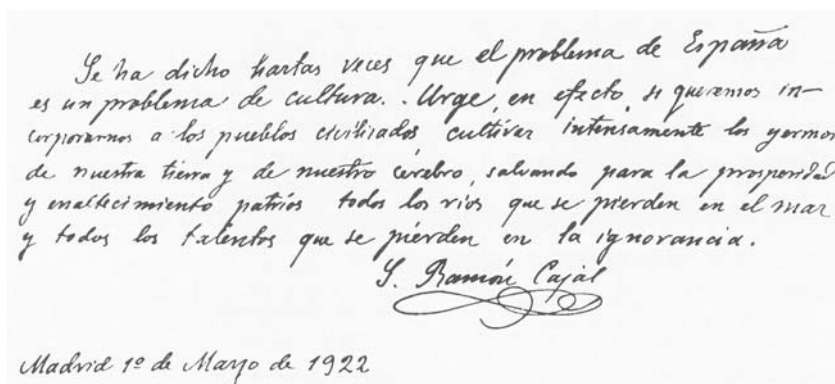 Se ha dicho hartas veces que el problema de España
es un problema de cultura. Urge, en efecto, si queremos in-
corporarnos a los pueblos civilizados, cultivar intensamente los yermos
de nuestra tierra y de nuestro cerebro, salvando para la prosperidad
y enaltecimiento patrios todos los ríos que se pierden en el mar
y todos los talentos que se pierden en la ignorancia.
S. Ramón Cajal
Madrid 1º de Mayo de 1922